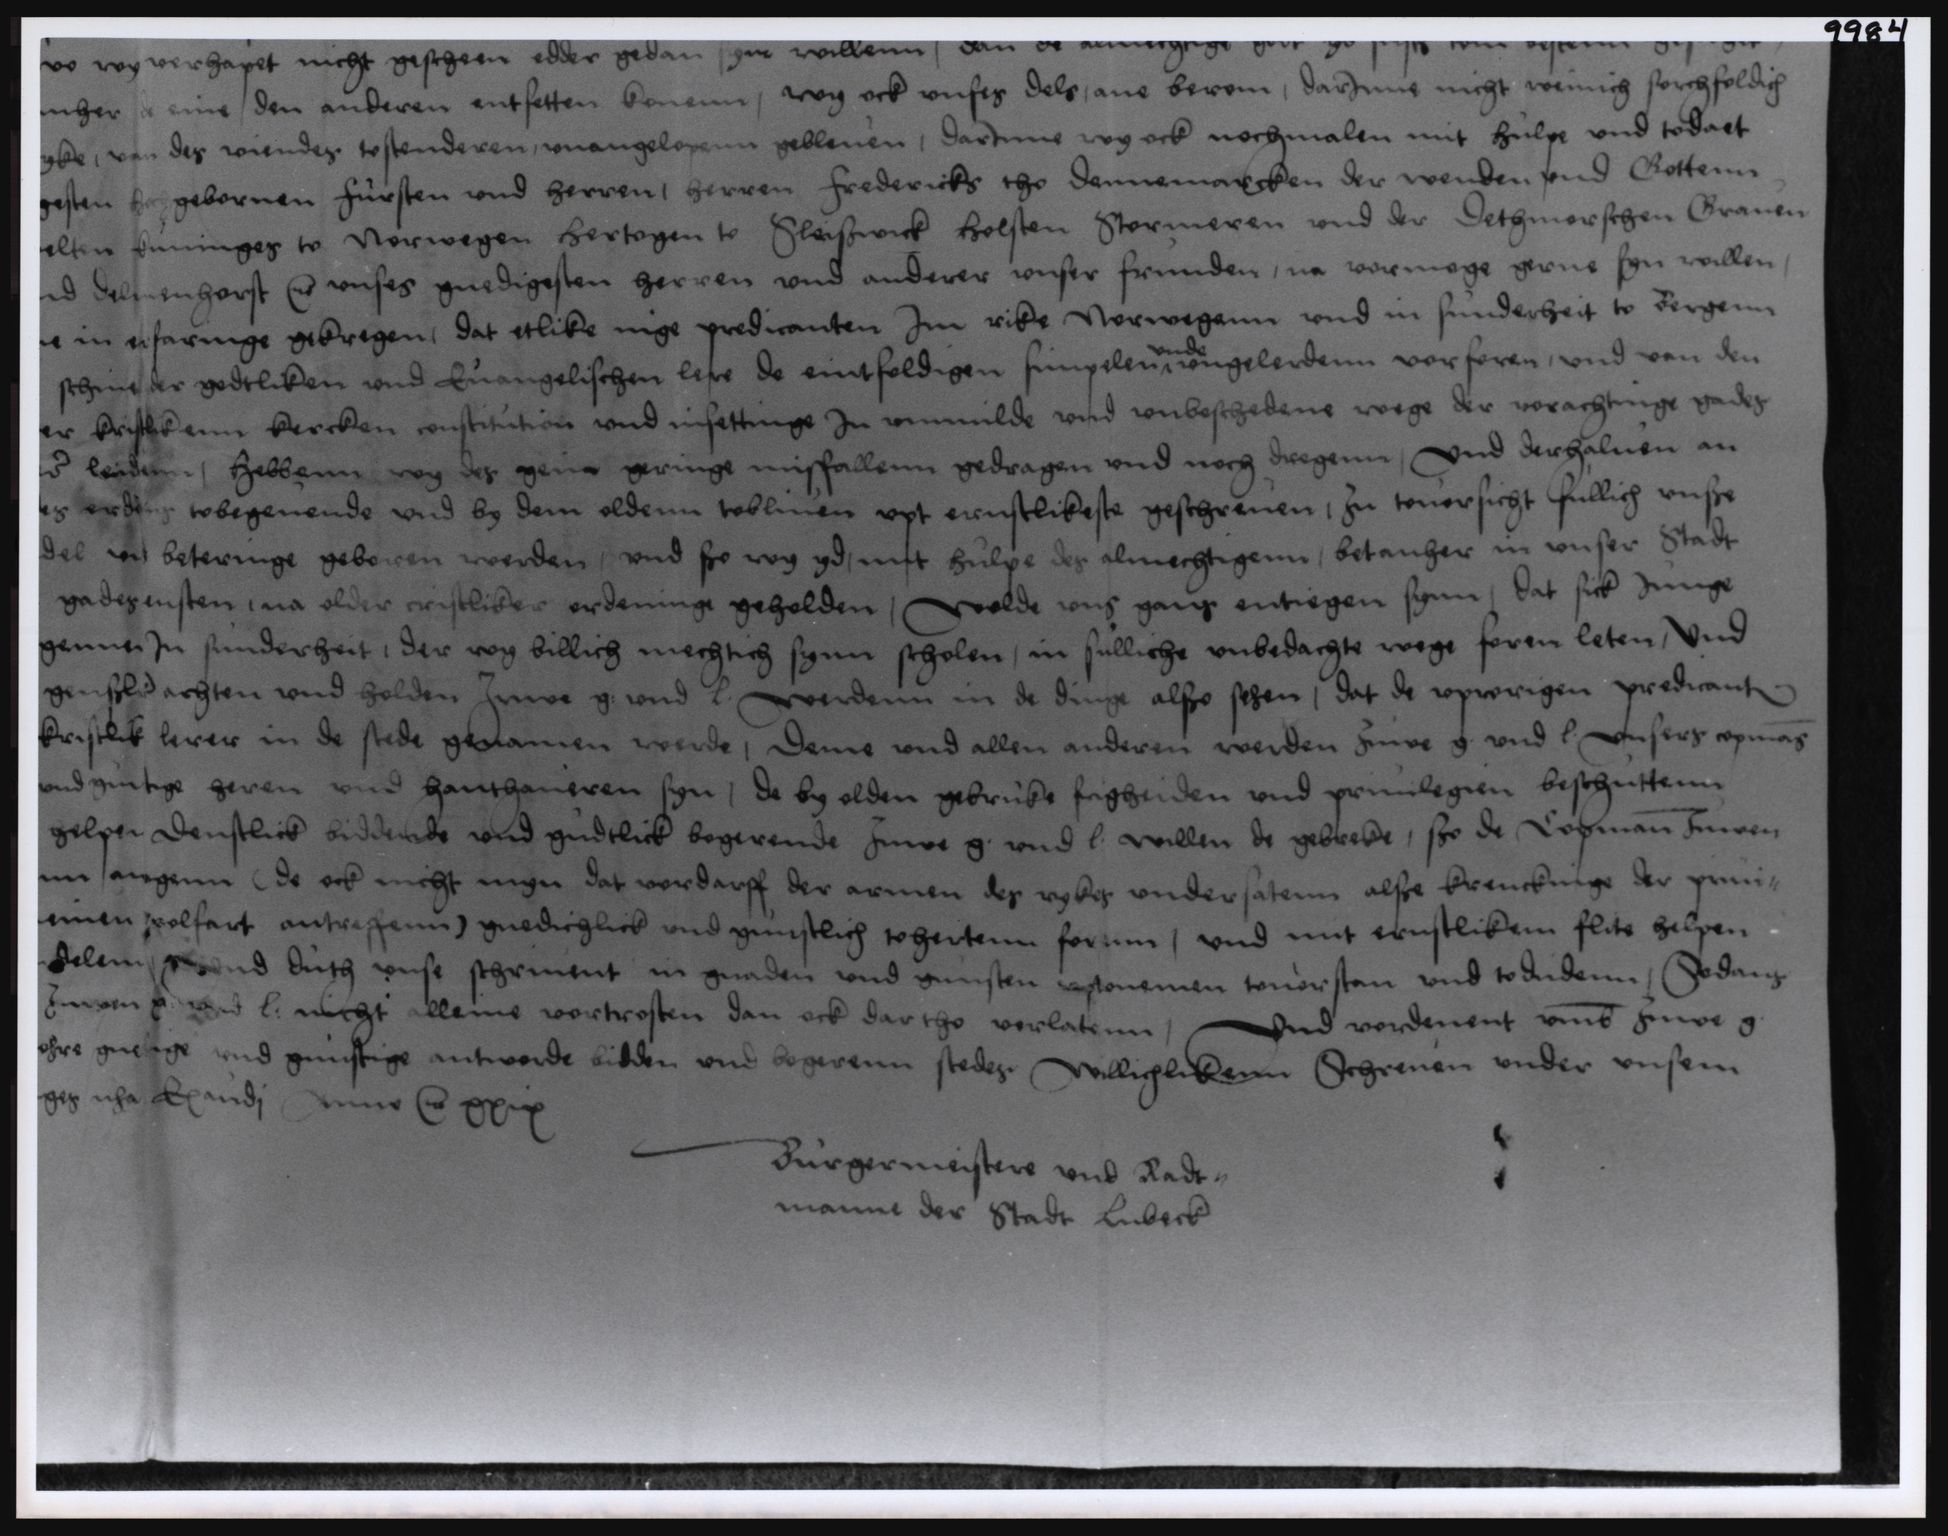 9984
wo wy verhapet nicht gescheen edder gedan syn willenn / dan de almechtige got
nher de eine den anderen entsetten konenn / wy ock unses dels ane berom / darInne nicht weinich sorchfoldich
yke / van des viendes tostenderen / unangelopenn gebleven / darInne wy ock nochmalen mit hulpe und todaet
gesten hochgebornen fursten und herren / herren Fredericks tho Dennemarcken der wenden und Gottenn
elten kuninges to Norwegen Hertogen to Sleszwick Holsten Stormeren und der Dethmerschen Graven
nd Delmenhorst unses gnedigesten herren und anderer unser frunden / na vormoge gerne syn willen /
ne in erfaringe gekregen / dat etlike nige predicanten Im rike Norwegenn und in sunderheit to Bergenn
schine der godtliken und Evangelischen lere de eintfoldigen simpelen unde ungelerdenn vorforen / und van den
er kristlikenn kercken constitution und insettinge In unmilde und unbeschedene wege der vorachtinge gades
leidenn / Hebbenn wy des gein geringe misfallenn gedragen und noch dregenn / Und derhalven an
es ordens tobegevende und by dem oldenn tobliven upt ernstlikeste geschreven / In tovorsicht sullich unsze
del in beteringe geboren werden / und szo wy yd / mit hulpe des almechtigenn / betanher in unser Stadt
gadesensten / na older cristliker ordeninge geholden / Wolde uns gans entiegen synn / dat sick Junge
gennen In sunderheit / der wy billich mechtich synn scholen / in sulliche unbedachte wege foren leten / Und
genszlich achten und holden Juwe g. und l. werdenn in de dinge alszo sehen / dat de uprorigen predicanten
kristlik lerer in de stede genamen werde / Deme und allen anderen werden Juwe g. und l. unsers copmans
und gunstige heren und hanthaveren syn / de by olden gebruke frigheiden und privilegien beschuttenn
helpen Denstlick biddende und gudtlick begerende Juwe g. und l. willen de gebreke / szo de Copmann Juwen
nn anegenn (de ock nicht myn dat vordarff der armen des rykes undersatenn alsze krenckinge der privi=
einen wolfart antreffenn) gnedichlick und gunstlich tohertenn forenn / und mit ernstlikem flite helpen
delenn / und duth unse schrivent in gnaden und gunsten uptonemen tovorstan und todudenn / Sodans
Juwen g. und l. nicht alleine vortrosten dan ock dartho verlatenn / Und vordenent umb Juwe g.
ohre gnedige und gunstige antworde bidden und begerenn stedes willichlikenn Schreven under unsem
ges nha Exaudi Anno xxix
Burgermeistere und Radt=
manne der Stadt Lubeck